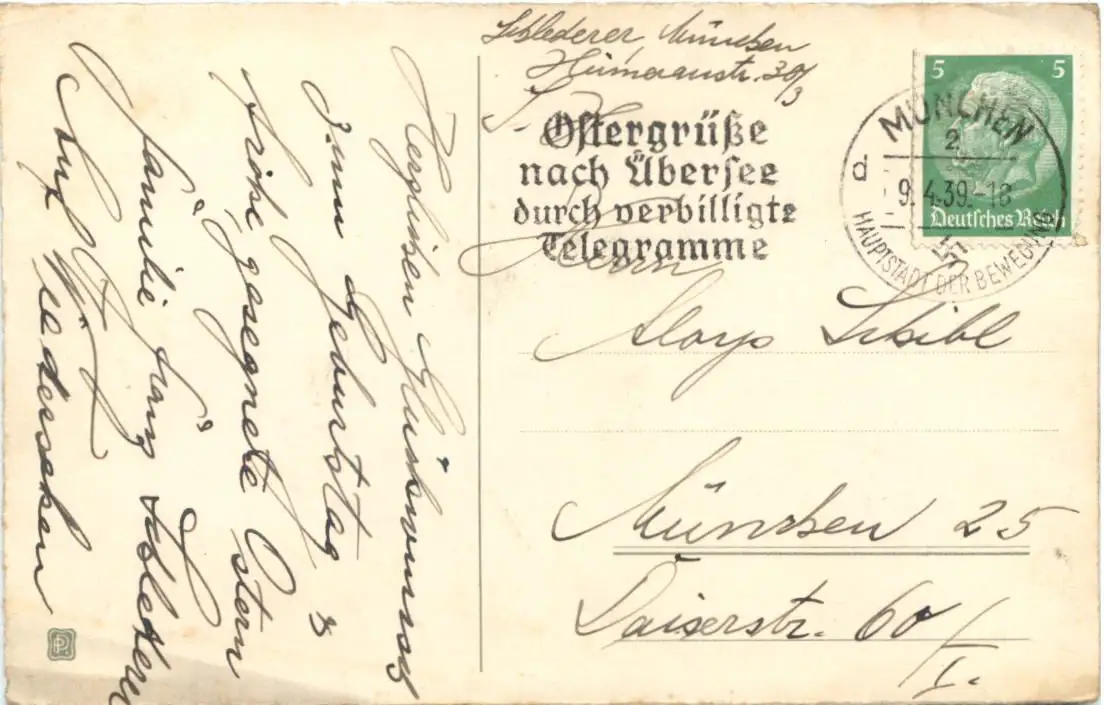 Schlederer München
Heimeranstr. 30/3
Ostergrüße
nach Übersee
durch verbilligte
Telegramme
5 5
Deutsches Reich
MÜNCHEN
2
d
9.4.39.-18
HAUPTSTADT DER BEWEGUNG
Herrn
Aloys Scheibl
München 25
Daiserstr. 60/I.
Herzlichen Glückwunsch
zum Geburtstag &
frohe gesegnete Ostern
Familie Franz Schlederer
Auf Wiedersehen